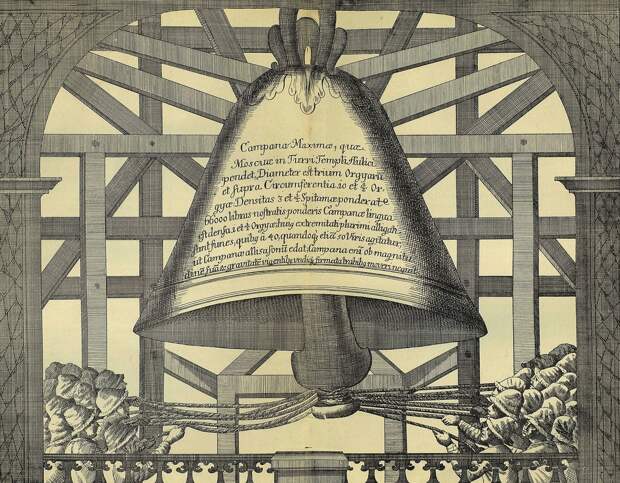 Campana Maxima, quæ
Moscuæ in Turri Templi Aulici
pendet, Diameter est trium Orgyarū
et supra. Circumferentia 10 et ¾ Or-
gyæ Densitas 3 et ½ Spitamæ ponderat
66000 libras nostratis ponderis Campanæ lingua
est densa. 1 et ¼ Orgyæ huiꝰ extremitati plurimi alligati
sunt funes, quibꝰ a 40, quandoqꝫ etiā 50 Viris agitatur,
ut Campanæ allisa sonū edat Campana enī ob magnitu
dinē suā &c gravitatē vigentibꝰ undiqꝫ firmata trabibꝰ moveri nequit